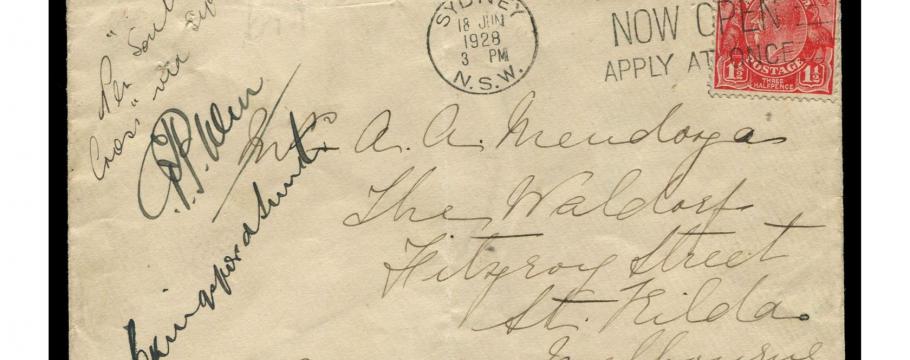 Per "South
Cross" via
C.T.P. Ulm
Kingsford Smith
SYDNEY
18 JUN
1928
3 PM
N.S.W.
NOW OPEN
APPLY AT ONCE
POSTAGE
1½ 1½
THREE
HALFPENCE
Mrs A. A. Mendoza
The Waldorf
Fitzroy Street
St. Kilda.
Melbourne